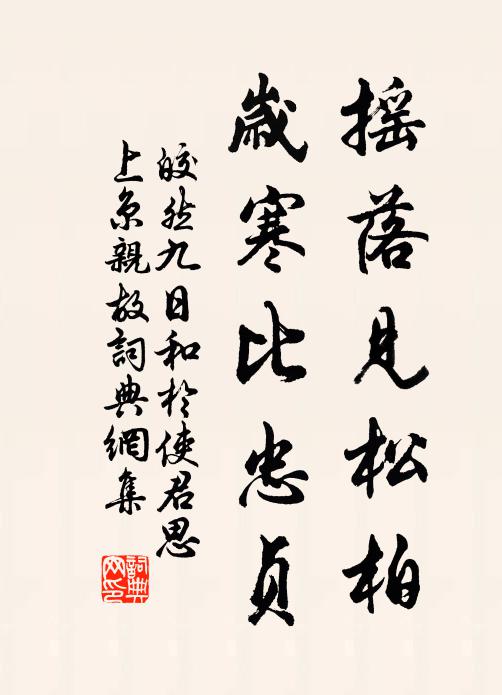 搖落見松柏
歲寒比忠貞
皎然九日和於使君思
上京親故詞典網集
詞典網印